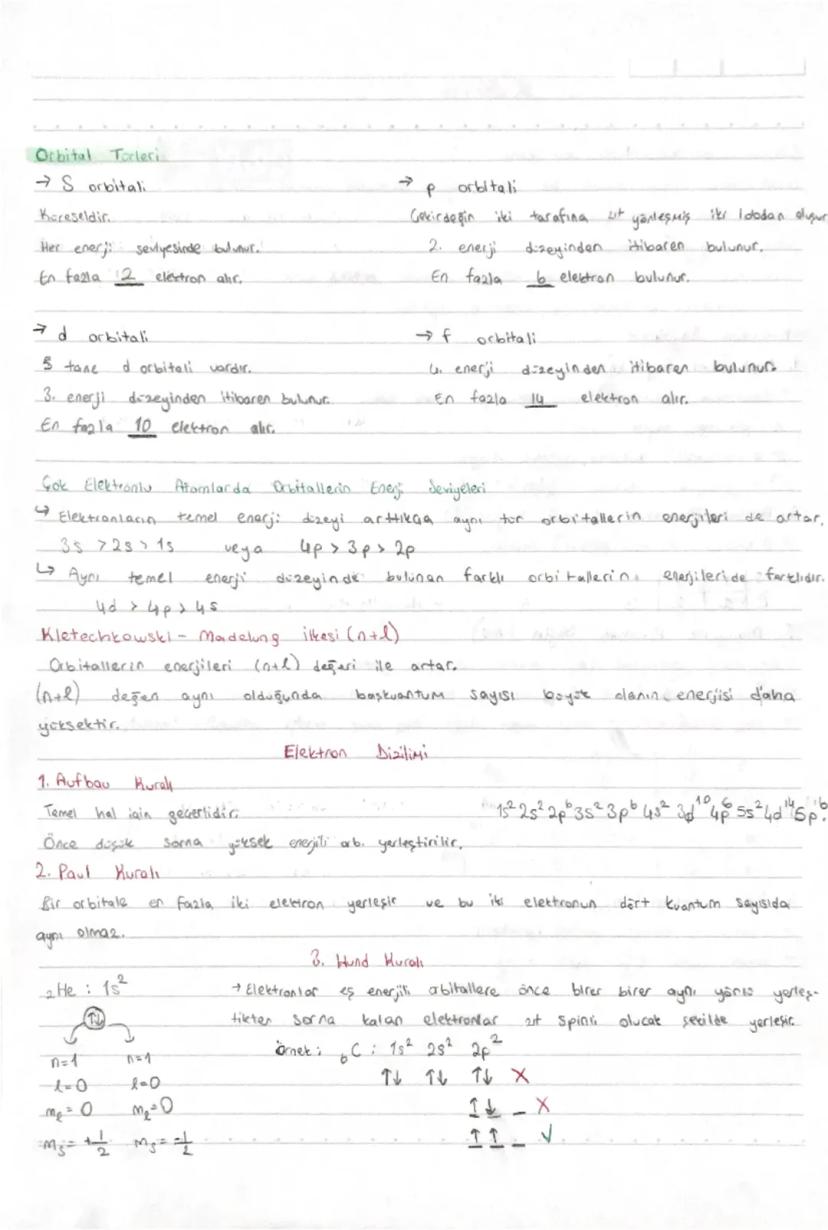 Orbital Türleri
→ S orbitali
Küreseldir.
Her enerji seviyesinde bulunur.
En fazla 2 elektron alır.
→ p orbitali
Çekirdeğin iki tarafına zıt yönleşmiş iki lobdan oluşur
2. enerji düzeyinden itibaren bulunur.
En fazla 6 elektron bulunur.
→ d orbitali
5 tane d orbitali vardır.
3. enerji düzeyinden itibaren bulunur.
En fazla 10 elektron alır.
→ f orbitali
4. enerji düzeyinden itibaren bulunur.
En fazla 14 elektron alır.
Çok Elektronlu Atomlarda Orbitallerin Enerji Seviyeleri
↳ Elektronların temel enerji düzeyi arttıkça aynı tür orbitallerin enerjileri de artar.
3s > 2s > 1s veya 4p > 3p > 2p
↳ Aynı temel enerji düzeyinde bulunan farklı orbitallerin enerjileride farklıdır.
4d > 4p > 4s
Kletechkowski - Madelung ilkesi (n+l)
Orbitallerin enerjileri (n+l) değeri ile artar.
(n+l) değeri aynı olduğunda başkuantum sayısı büyük olanın enerjisi daha
yüksektir.
Elektron Dizilimi
1. Aufbau Kuralı
Temel hal için geçerlidir. 1s² 2s² 2p⁶ 3s² 3p⁶ 4s² 3d¹⁰ 4p⁶ 5s² 4d¹⁴ 5p⁶.
Önce düşük sorna yüksek enerjili orb. yerleştirilir.
2. Paul Kuralı
Bir orbitale en fazla iki elektron yerleşir ve bu iki elektronun dört kuantum sayısıda
aynı olmaz.
3. Hund Kuralı
₂He : 1s²
↑↓
n=1 n=1
l=0 l=0
mₗ=0 mₗ=0
mₛ=+1/2 mₛ=-1/2
→ Elektronlar eş enerjili orbitallere önce birer birer aynı yönlü yerleş-
tikten sorna kalan elektronlar zıt spinli olucak şekilde yerleşir.
Örnek : ₆C : 1s² 2s² 2p²
↑↓ ↑↓ ↑↓ X
↑↓ _ X
↑ ↑ _ √